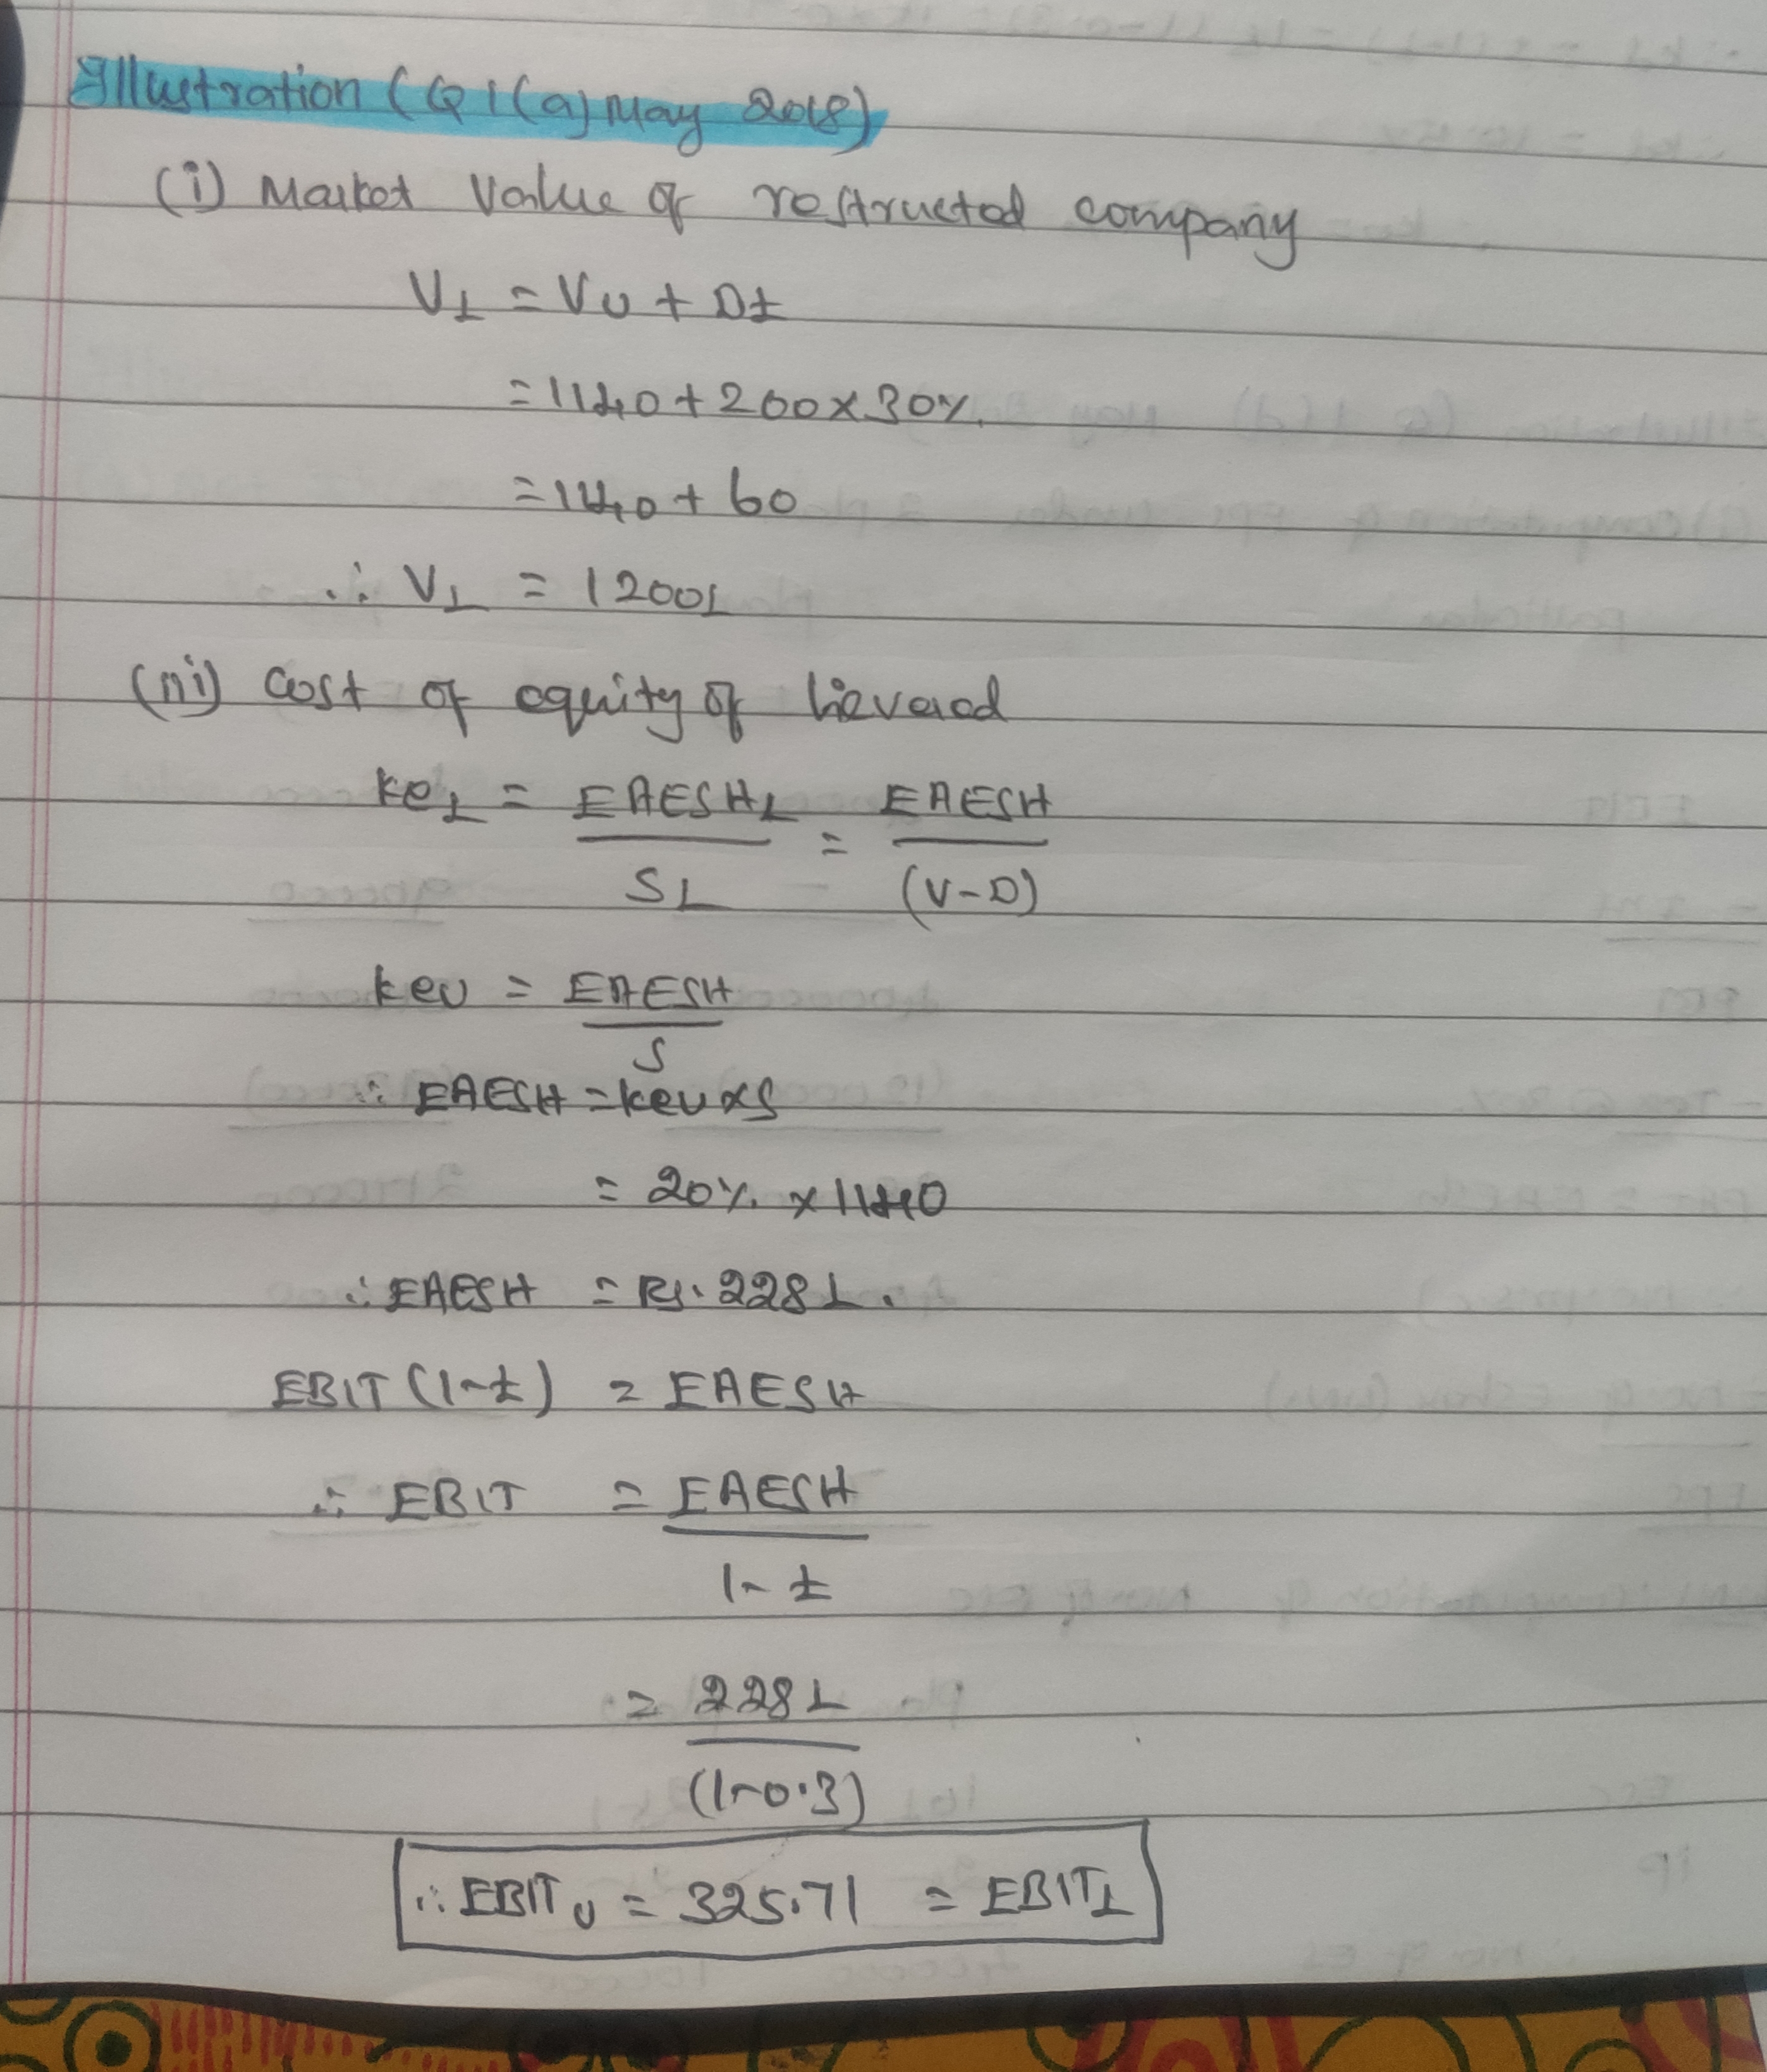 Illustration (Q 1(a) May 2018)
(i) Market Value of restructed company
VL = VU + Dt
= 1140 + 200 x 30%.
= 1140 + 60
∴ VL = 1200L
(ii) Cost of equity of lievered
keL = EAESHL / SL = EAESH / (V-D)
keU = EAESH / S
∴ EAESH = keU x S
= 20%. x 1140
∴ EAESH = Rs. 228 L.
EBIT (1-t) = EAESH
∴ EBIT = EAESH / 1-t
= 228 L / (1-0.3)
∴ EBITU = 325.71 = EBITL